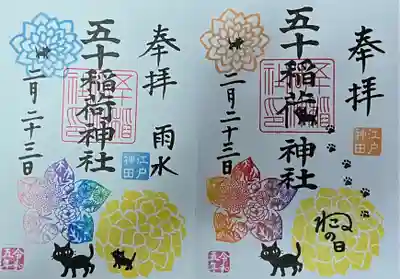 奉拝 雨水
五十稲荷神社
江戸
神田
二月二十三日
令和
五年
奉拝
江戸
神田
五十稲荷神社
二月二十三日
ねの日
令和
五年